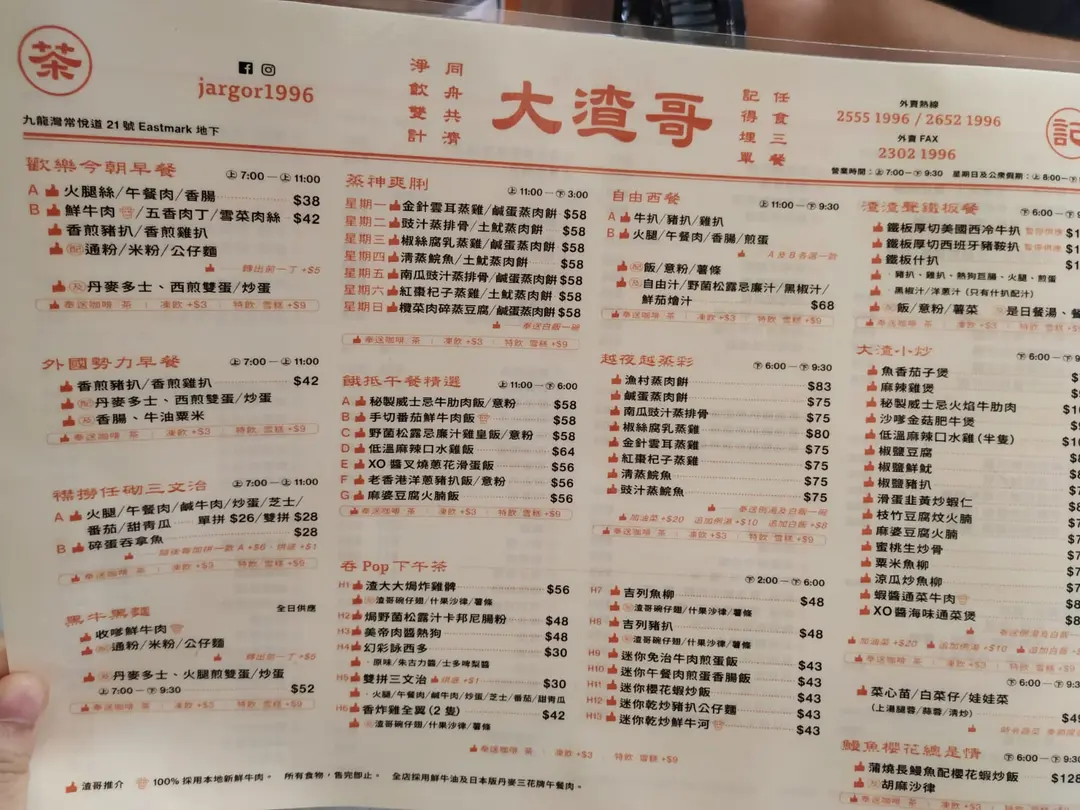 茶
jargor1996
九龍灣常悅道 21 號 Eastmark 地下
同舟共濟
淨飲雙計
大渣哥
任食三餐
記得埋單
外賣熱線
2555 1996 / 2652 1996
外賣 FAX
2302 1996
記
營業時間：上 7:00－下 9:30 星期日及公眾假期：上 8:00－下
歡樂今朝早餐 上 7:00－上 11:00
A 火腿絲/午餐肉/香腸 $38
B 鮮牛肉/五香肉丁/雪菜肉絲 $42
香煎豬扒/香煎雞扒
配 通粉/米粉/公仔麵
轉出前一丁 +$5
及 丹麥多士、西煎雙蛋/炒蛋
奉送咖啡 茶 | 凍飲 +$3 | 特飲 雪糕 +$9
外國勢力早餐 上 7:00－上 11:00
香煎豬扒/香煎雞扒 $42
配 丹麥多士、西煎雙蛋/炒蛋
及 香腸、牛油粟米
奉送咖啡 茶 | 凍飲 +$3 | 特飲 雪糕 +$9
襟撈任砌三文治 上 7:00－上 11:00
A 火腿/午餐肉/鹹牛肉/炒蛋/芝士/
番茄/甜青瓜 單拼 $26/雙拼 $28
B 碎蛋吞拿魚 $28
隨後每加拼一款 A +$6 烘底 +$1
奉送咖啡 茶 | 凍飲 +$3 | 特飲 雪糕 +$9
黑牛黑麵 全日供應
收嗲鮮牛肉
配 通粉/米粉/公仔麵
轉出前一丁 +$5
及 丹麥多士、火腿煎雙蛋/炒蛋
上 7:00－下 9:30 $52
奉送咖啡 茶 | 凍飲 +$3 | 特飲 雪糕 +$9
蒸神爽脷 上 11:00－下 3:00
星期一 金針雲耳蒸雞/鹹蛋蒸肉餅 $58
星期二 豉汁蒸排骨/土魷蒸肉餅 $58
星期三 椒絲腐乳蒸雞/鹹蛋蒸肉餅 $58
星期四 清蒸鯇魚/土魷蒸肉餅 $58
星期五 南瓜豉汁蒸排骨/鹹蛋蒸肉餅 $58
星期六 紅棗杞子蒸雞/土魷蒸肉餅 $58
星期日 欖菜肉碎蒸豆腐/鹹蛋蒸肉餅 $58
奉送白飯一碗
奉送咖啡 茶 | 凍飲 +$3 | 特飲 雪糕 +$9
餓抵午餐精選 上 11:00－下 6:00
A 秘製威士忌牛肋肉飯/意粉 $58
B 手切番茄鮮牛肉飯 $58
C 野菌松露忌廉汁雞皇飯/意粉 $58
D 低溫麻辣口水雞飯 $64
E XO 醬叉燒蔥花滑蛋飯 $56
F 老香港洋蔥豬扒飯/意粉 $56
G 麻婆豆腐火腩飯 $56
奉送咖啡 茶 | 凍飲 +$3 | 特飲 雪糕 +$9
自由西餐 上 11:00－下 9:30
A 牛扒/豬扒/雞扒
B 火腿/午餐肉/香腸/煎蛋
A 及 B 各選一款
配 飯/意粉/薯條
及 自由汁/野菌松露忌廉汁/黑椒汁/
鮮茄燴汁 $68
奉送咖啡 茶 | 凍飲 +$3 | 特飲 雪糕 +$9
越夜越蒸彩 下 6:00－下 9:30
漁村蒸肉餅 $83
鹹蛋蒸肉餅 $75
南瓜豉汁蒸排骨 $75
椒絲腐乳蒸雞 $80
金針雲耳蒸雞 $75
紅棗杞子蒸雞 $75
清蒸鯇魚 $75
豉汁蒸鯇魚 $75
奉送例湯及白飯一碗
加油菜 +$20 追加例湯 +$10 追加白飯 +$8
奉送咖啡 茶 | 凍飲 +$3 | 特飲 雪糕 +$9
吞 Pop 下午茶 下 2:00－下 6:00
H1 渣大大焗炸雞髀 $56
渣哥碗仔翅/什果沙律/薯條
H2 焗野菌松露汁卡邦尼腸粉 $48
H3 美帝肉醬熱狗 $48
H4 幻彩詠西多 $30
· 原味/朱古力醬/士多啤梨醬
H5 雙拼三文治 烘底 +$1 $30
· 火腿/午餐肉/鹹牛肉/炒蛋/芝士/番茄/甜青瓜
H6 香炸雞全翼 (2 隻) $42
渣哥碗仔翅/什果沙律/薯條
H7 吉列魚柳 $48
渣哥碗仔翅/什果沙律/薯條
H8 吉列豬扒 $48
渣哥碗仔翅/什果沙律/薯條
H9 迷你免治牛肉煎蛋飯 $43
H10 迷你午餐肉煎蛋香腸飯 $43
H11 迷你櫻花蝦炒飯 $43
H12 迷你乾炒豬扒公仔麵 $43
H13 迷你乾炒鮮牛河 $43
奉送咖啡 茶 | 凍飲 +$3 | 特飲 雪糕 +$9
渣渣聲鐵板餐 下 6:00－下 9
鐵板厚切美國西冷牛扒 暫停供應 $1
鐵板厚切西班牙豬鞍扒 暫停供應 $1
鐵板什扒 $1
· 豬扒、雞扒、熱狗巨腸、火腿、煎蛋
· 黑椒汁/洋蔥汁 (只有什扒配汁)
配 飯/意粉/薯菜 及 是日餐湯、餐
奉送咖啡 茶 | 凍飲 +$3 | 特飲 雪糕 +$
大渣小炒 下 6:00－下 9
魚香茄子煲
麻辣雞煲
秘製威士忌火焰牛肋肉
沙嗲金菇肥牛煲
低溫麻辣口水雞 (半隻)
椒鹽豆腐
椒鹽鮮魷
椒鹽豬扒
滑蛋韭黃炒蝦仁
枝竹豆腐炆火腩
麻婆豆腐火腩
蜜桃生炒骨
粟米魚柳
涼瓜炒魚柳
蝦醬通菜牛肉
XO 醬海味通菜煲
奉送例湯及白飯一
加油菜 +$20 追加例湯 +$10 追加白飯 +$
奉送咖啡 茶 | 凍飲 +$3 | 特飲 雪糕 +$
下 6:00－下 9:3
菜心苗/白菜仔/娃娃菜
(上湯腿蓉/蒜蓉/清炒) $4
鰻魚櫻花總是情 下 6:00－下 9:30
蒲燒長鰻魚配櫻花蝦炒飯 $128
及 胡麻沙律
奉送咖啡 茶 | 凍飲 +$3 | 特飲 雪糕 +$9
渣哥推介 100% 採用本地新鮮牛肉。 所有食物，售完即止。 全店採用鮮牛油及日本版丹麥三花牌午餐肉。